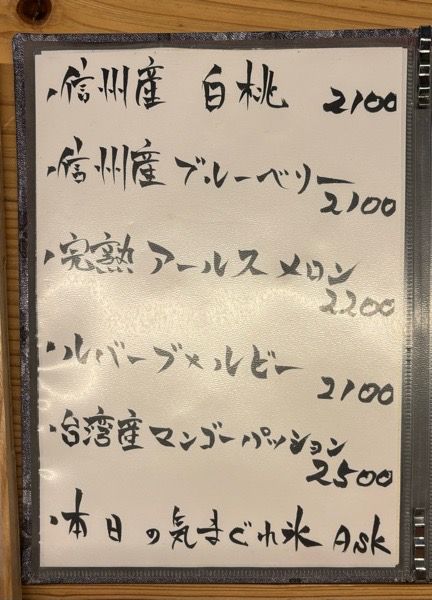 ・信州産 白桃 2100
・信州産 ブルーベリー
2100
・完熟 アールス メロン
2200
・ルバーブメルビー
2100
・台湾産マンゴーパッション
2500
・本日の気まぐれ氷 Ask